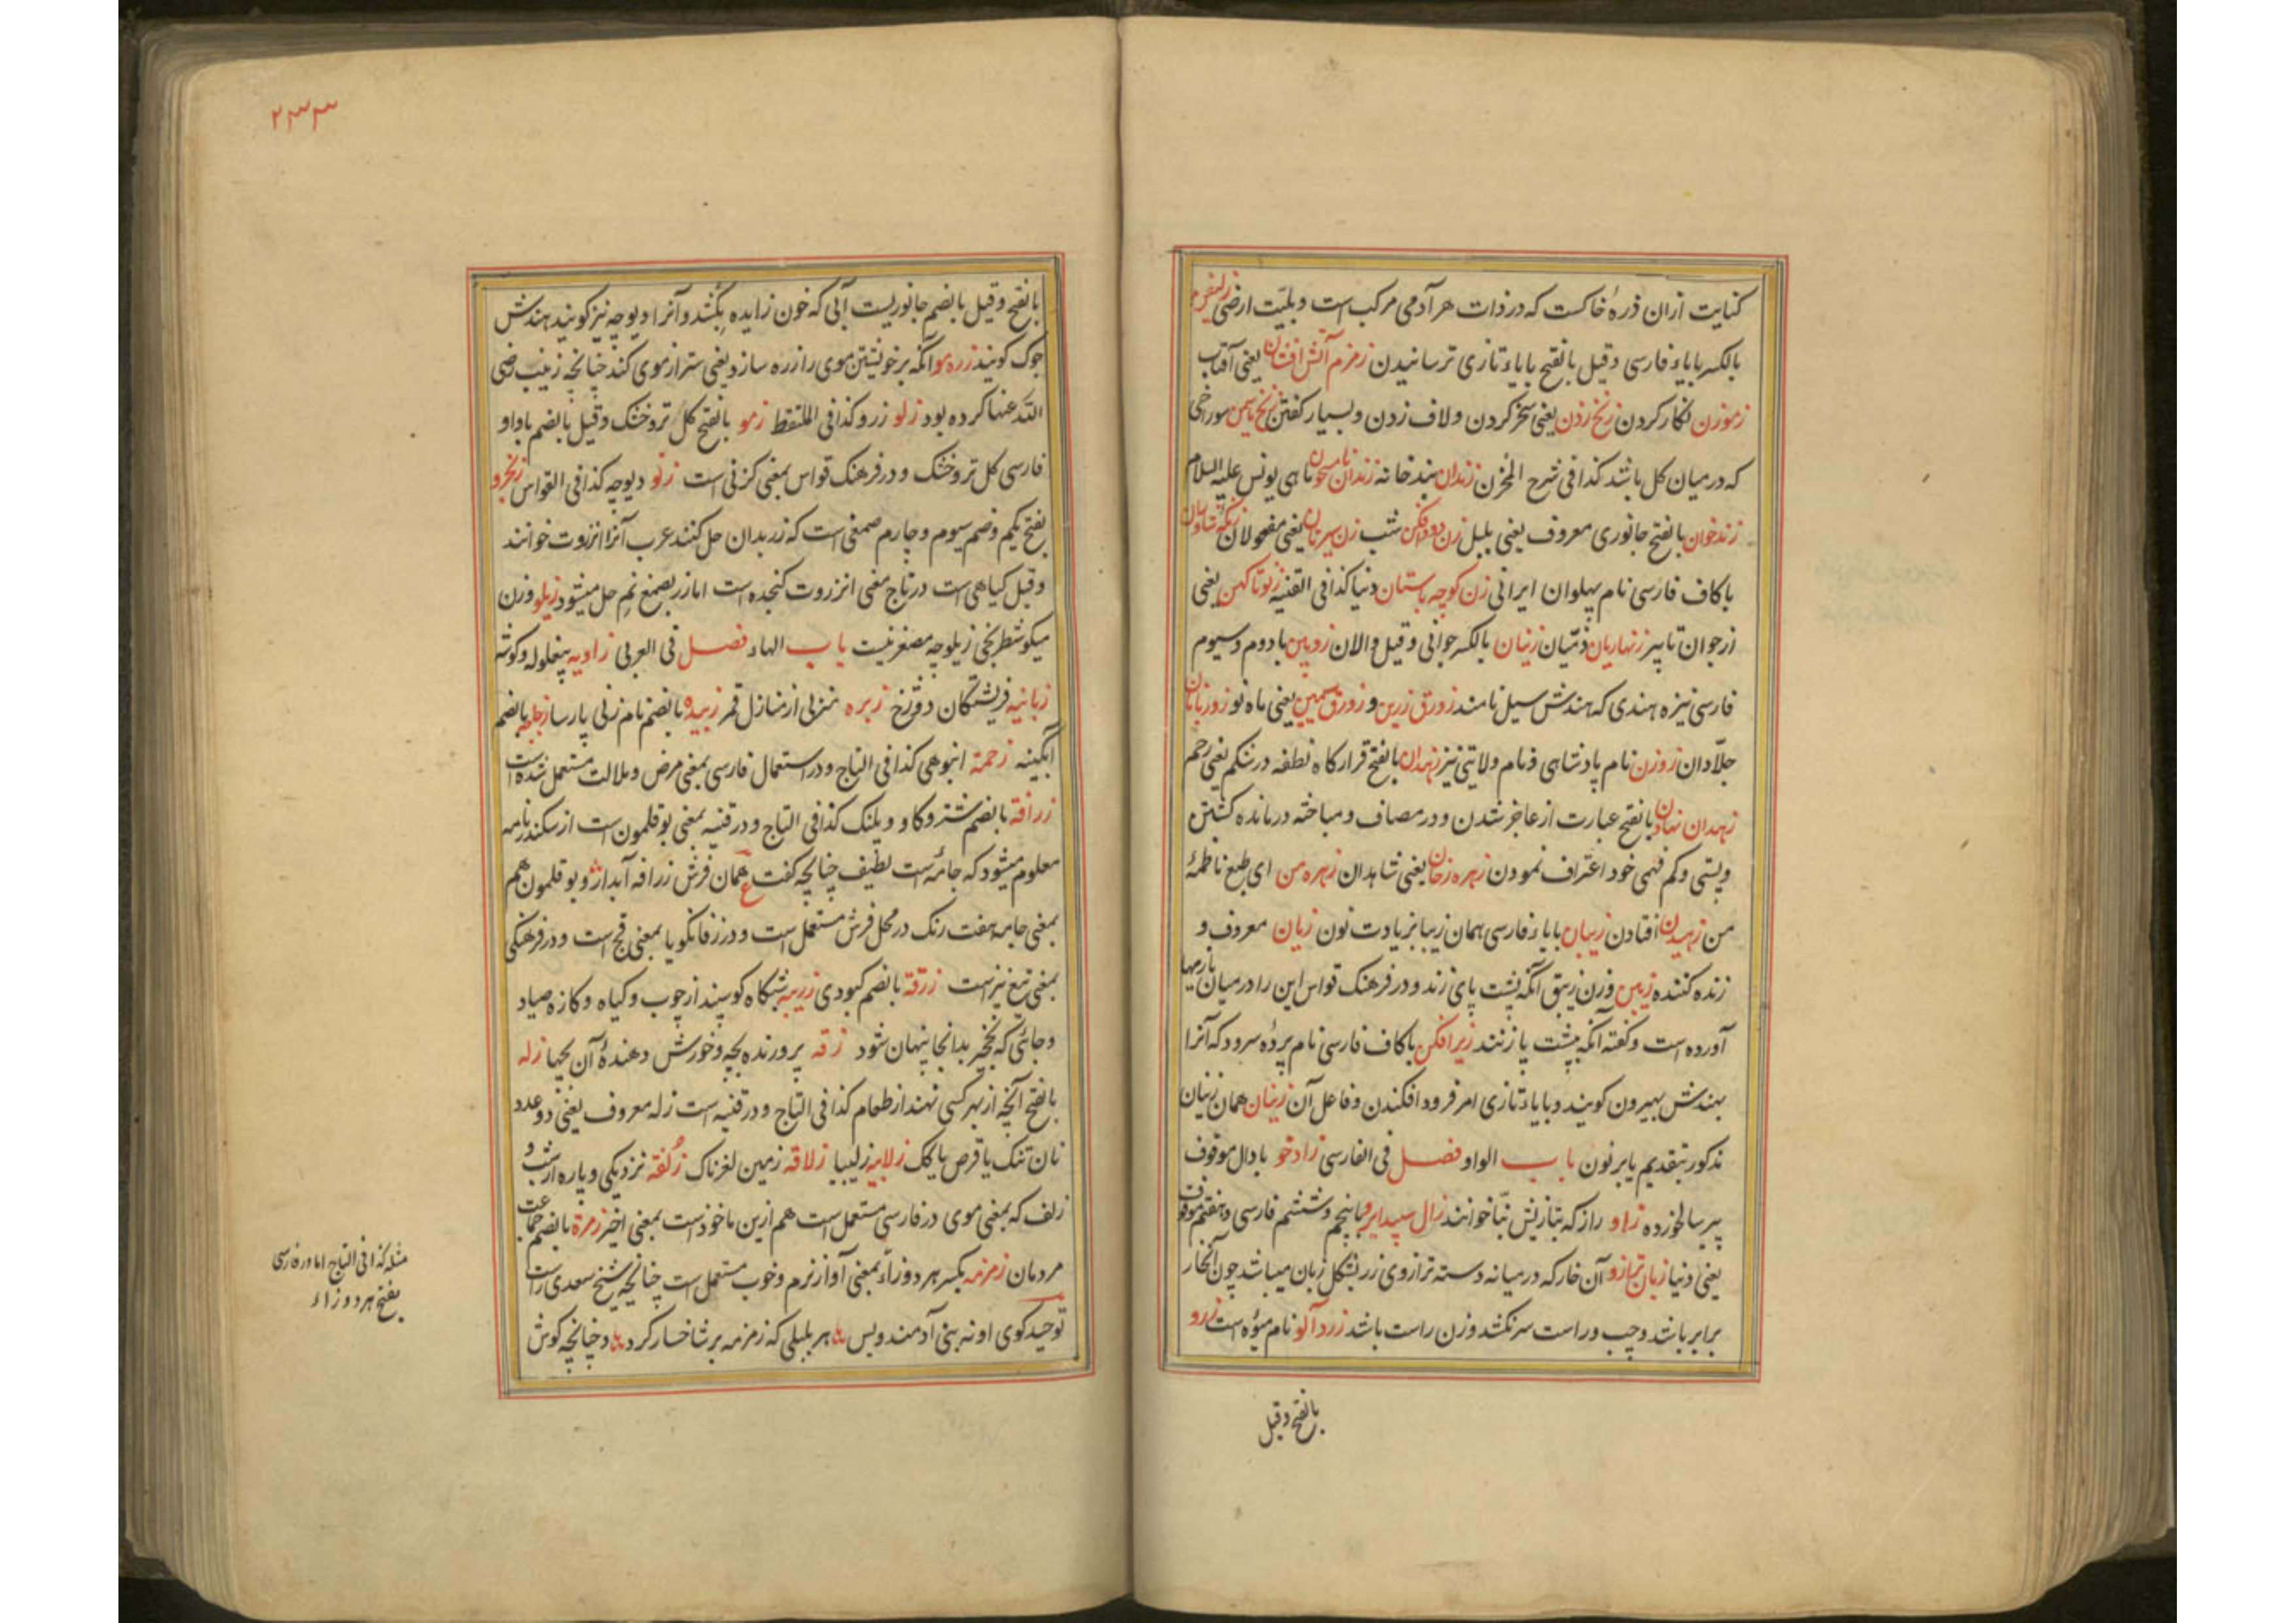 کنایت ازان ذرهٔ خاکست که در ذات هر آدمی مرکب است و بلیّت ارضی
بالکسر با یاء فارسی و قیل بالفتح با یاء تازی ترسانیدن زمزم آتش افشان یعنی آفتاب
زموزن نکار کردن زنخ زدن یعنی سخر کردن و لاف زدن و بسیار کفتن سوراخی
که در میان کل باشد کذا فی شرح المخزن زندان بندخانه ماهی یونس علیه السلام
زندخوان بالفتح جانوری معروف یعنی بلبل شب یعنی مغولان
با کاف فارسی نام پهلوان ایرانی زن کوچه باستان دنیا کذا فی القنیه زنوتا کهن یعنی
از جوان تا پیر زنهاریان ذمّیان زنیان بالکسر جوانی و قیل والان زوبین با دوم و سیوم
فارسی نیزه هندی که هندش سیل نامند زورق زرین و زورق سیمین یعنی ماه نو زوزبانان
جلّادان زوزن نام پادشاهی و نام ولایتی نیز زهدان بالفتح قرارکاه نطفه در شکم یعنی رحم
زهدان نهادن بالفتح عبارت از عاجز شدن و در مصاف و مباحثه درمانده کشتن
و پستی و کم فهمی خود اعتراف نمودن زهره زخان یعنی شاهدان زهره من ای طبع ناطقهٔ
من زهیدن افتادن زیبان با یاء فارسی همان زیبا بزیادت نون زیان معروف و
زنده کننده زیبن وزن زیبق آنکه پشت پای زند و در فرهنک قواس این را در میان
آورده است و کفته آنکه پشت پا زنند زیرافکن با کاف فارسی نام پردهٔ سرود که آنرا
بهندش بهیرون کویند و با یاء تازی امر فرود افکندن و فاعل آن زینان همان زنیان
مذکور بتقدیم یا بر نون باب الواو فصل فی الفارسی زادخو با دال موقوف
پیر سالخورده زاو راز که بتازیش بنّا خوانند زال سپید ابرو با پنجم و ششم فارسی و هفتم موقوف
یعنی دنیا زبان ترازو آن خار که در میانه دسته ترازوی زر بشکل زبان میباشد چون آنخار
برابر باشد و چپ و راست سر نکشد وزن راست باشد زردآلو نام میوه است زرو
بالفتح و قیل
۲۳۳
بالفتح و قیل بالضم جانوریست آبی که خون زایده بکشد و آنرا دیوچه نیز کویند هندش
جوک کویند زره مو آنکه بر خویشتن موی را زره سازد یعنی ستر از موی کند چنانچه زینب رضی
اللّه عنها کرده بود زلو زرو کذا فی الملتقط زمو بالفتح کل تر و خشک و قیل بالضم با واو
فارسی کل تر و خشک و در فرهنک قواس بمعنی کزنی است زلو دیوچه کذا فی القواس زنجرو
بفتح یکم و ضم سیوم و چارم صمغی است که زر بدان حل کنند عرب آنرا انزروت خوانند
و قیل کیاهی است در تاج معنی انزروت کنجده است اما زر بصمغ نم حل میشود زیلو وزن
میکو شطرنجی زیلوچه مصغر نیست باب الهاء فصل فی العربی زاویه پیغوله و کوشه
زبانیه فریشتکان دوزخ زبره منزلی از منازل قمر زبیده بالضم نام زنی پارسا زجاجه بالضم
آبکینه زحمة انبوهی کذا فی التاج و در استعمال فارسی بمعنی مرض و ملالت مستعمل شده است
زرافة بالضم شتر و کاو و پلنک کذا فی التاج و در قنیه بمعنی بوقلمون است از سکندرنامه
معلوم میشود که جامه است لطیف چنانچه کفت ع همان فرش زرافه آبدار و بوقلمون هم
بمعنی جامه هفت رنک در محل فرش مستعمل است و در زفانکویا بمعنی قج است و در فرهنکی
بمعنی تیغ نیز است زرقة بالضم کبودی زریبه شبکاه کوسپند از چوب و کیاه و کازه صیاد
و جائی که نخچیر بدانجا پنهان شود زقه پرورنده بچه و خورش دهندهٔ آن بچها زله
بالفتح آنچه از بهر کسی نهند از طعام کذا فی التاج و در قنیه است زله معروف یعنی دو عدد
نان تنک یا قرص یا کاک زلابیه زلیبیا زلاقه زمین لغزناک زلفة نزدیکی و پاره از شب و
زلف که بمعنی موی در فارسی مستعمل است هم ازین ماخوذست بمعنی اخیر زمرة بالضم جماعت
مردمان زمزمه بکسر هر دو زاء بمعنی آواز نرم و خوب مستعمل است چنانچه شیخ سعدی راست
توحید کوی او نه بنی آدمند و بس هر بلبلی که زمزمه بر شاخسار کرد و چنانچه کوش
مثله کذا فی التاج اما در فارسی
بفتح هر دو زاء